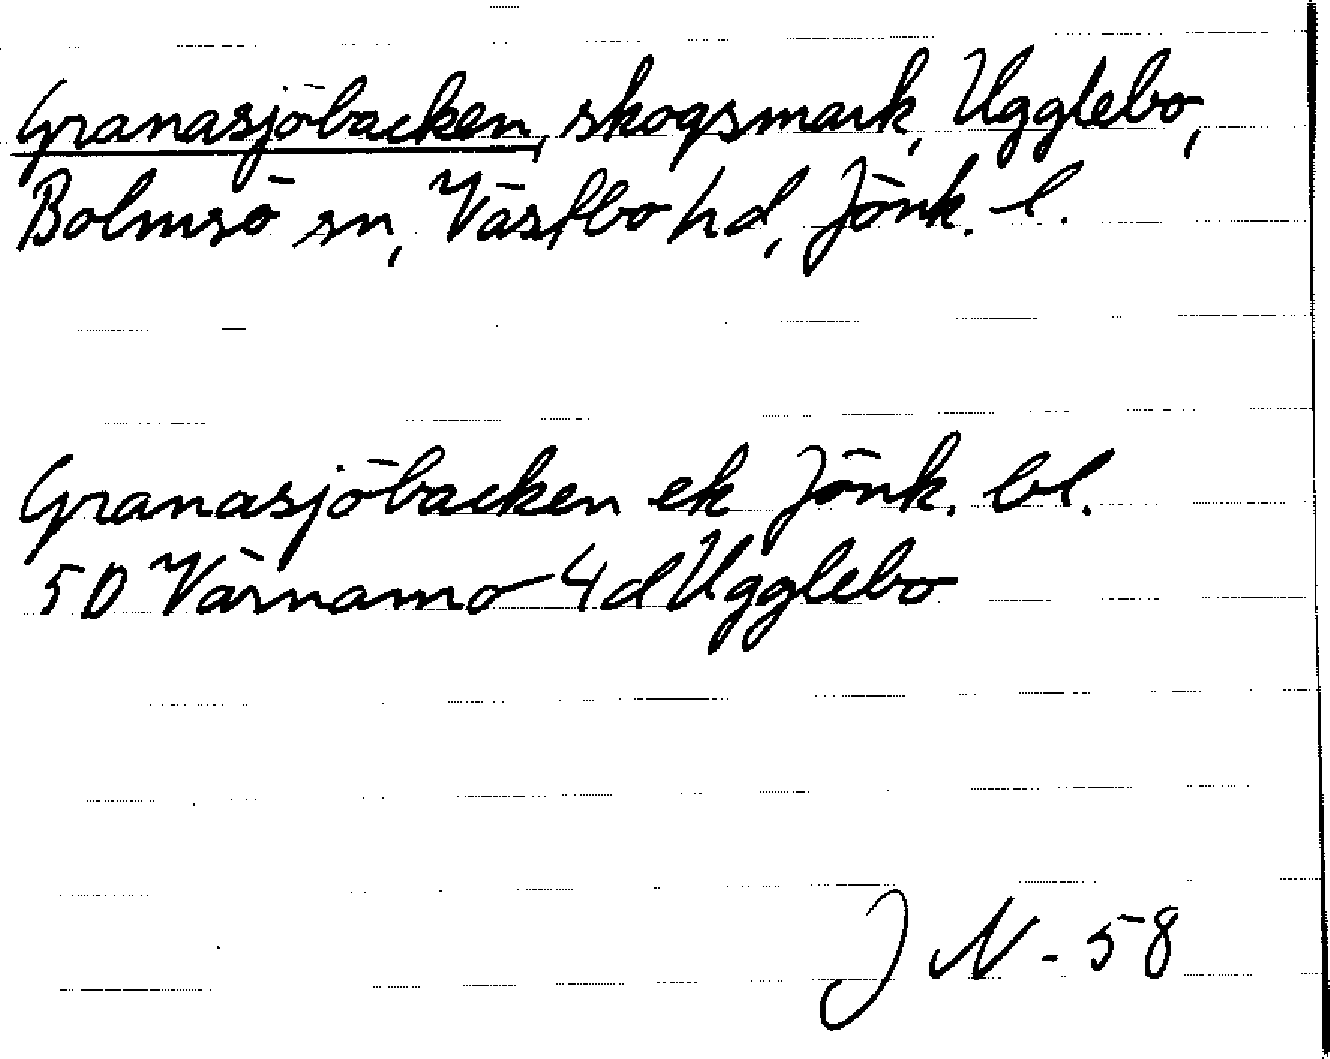 Granasjöbacken, skogsmark, Ugglebo,
Bolmsö sn, Västbo hd, Jönk. l.
Granasjöbacken ek Jönk. bl.
5D Värnamo 4d Ugglebo
J N - 58